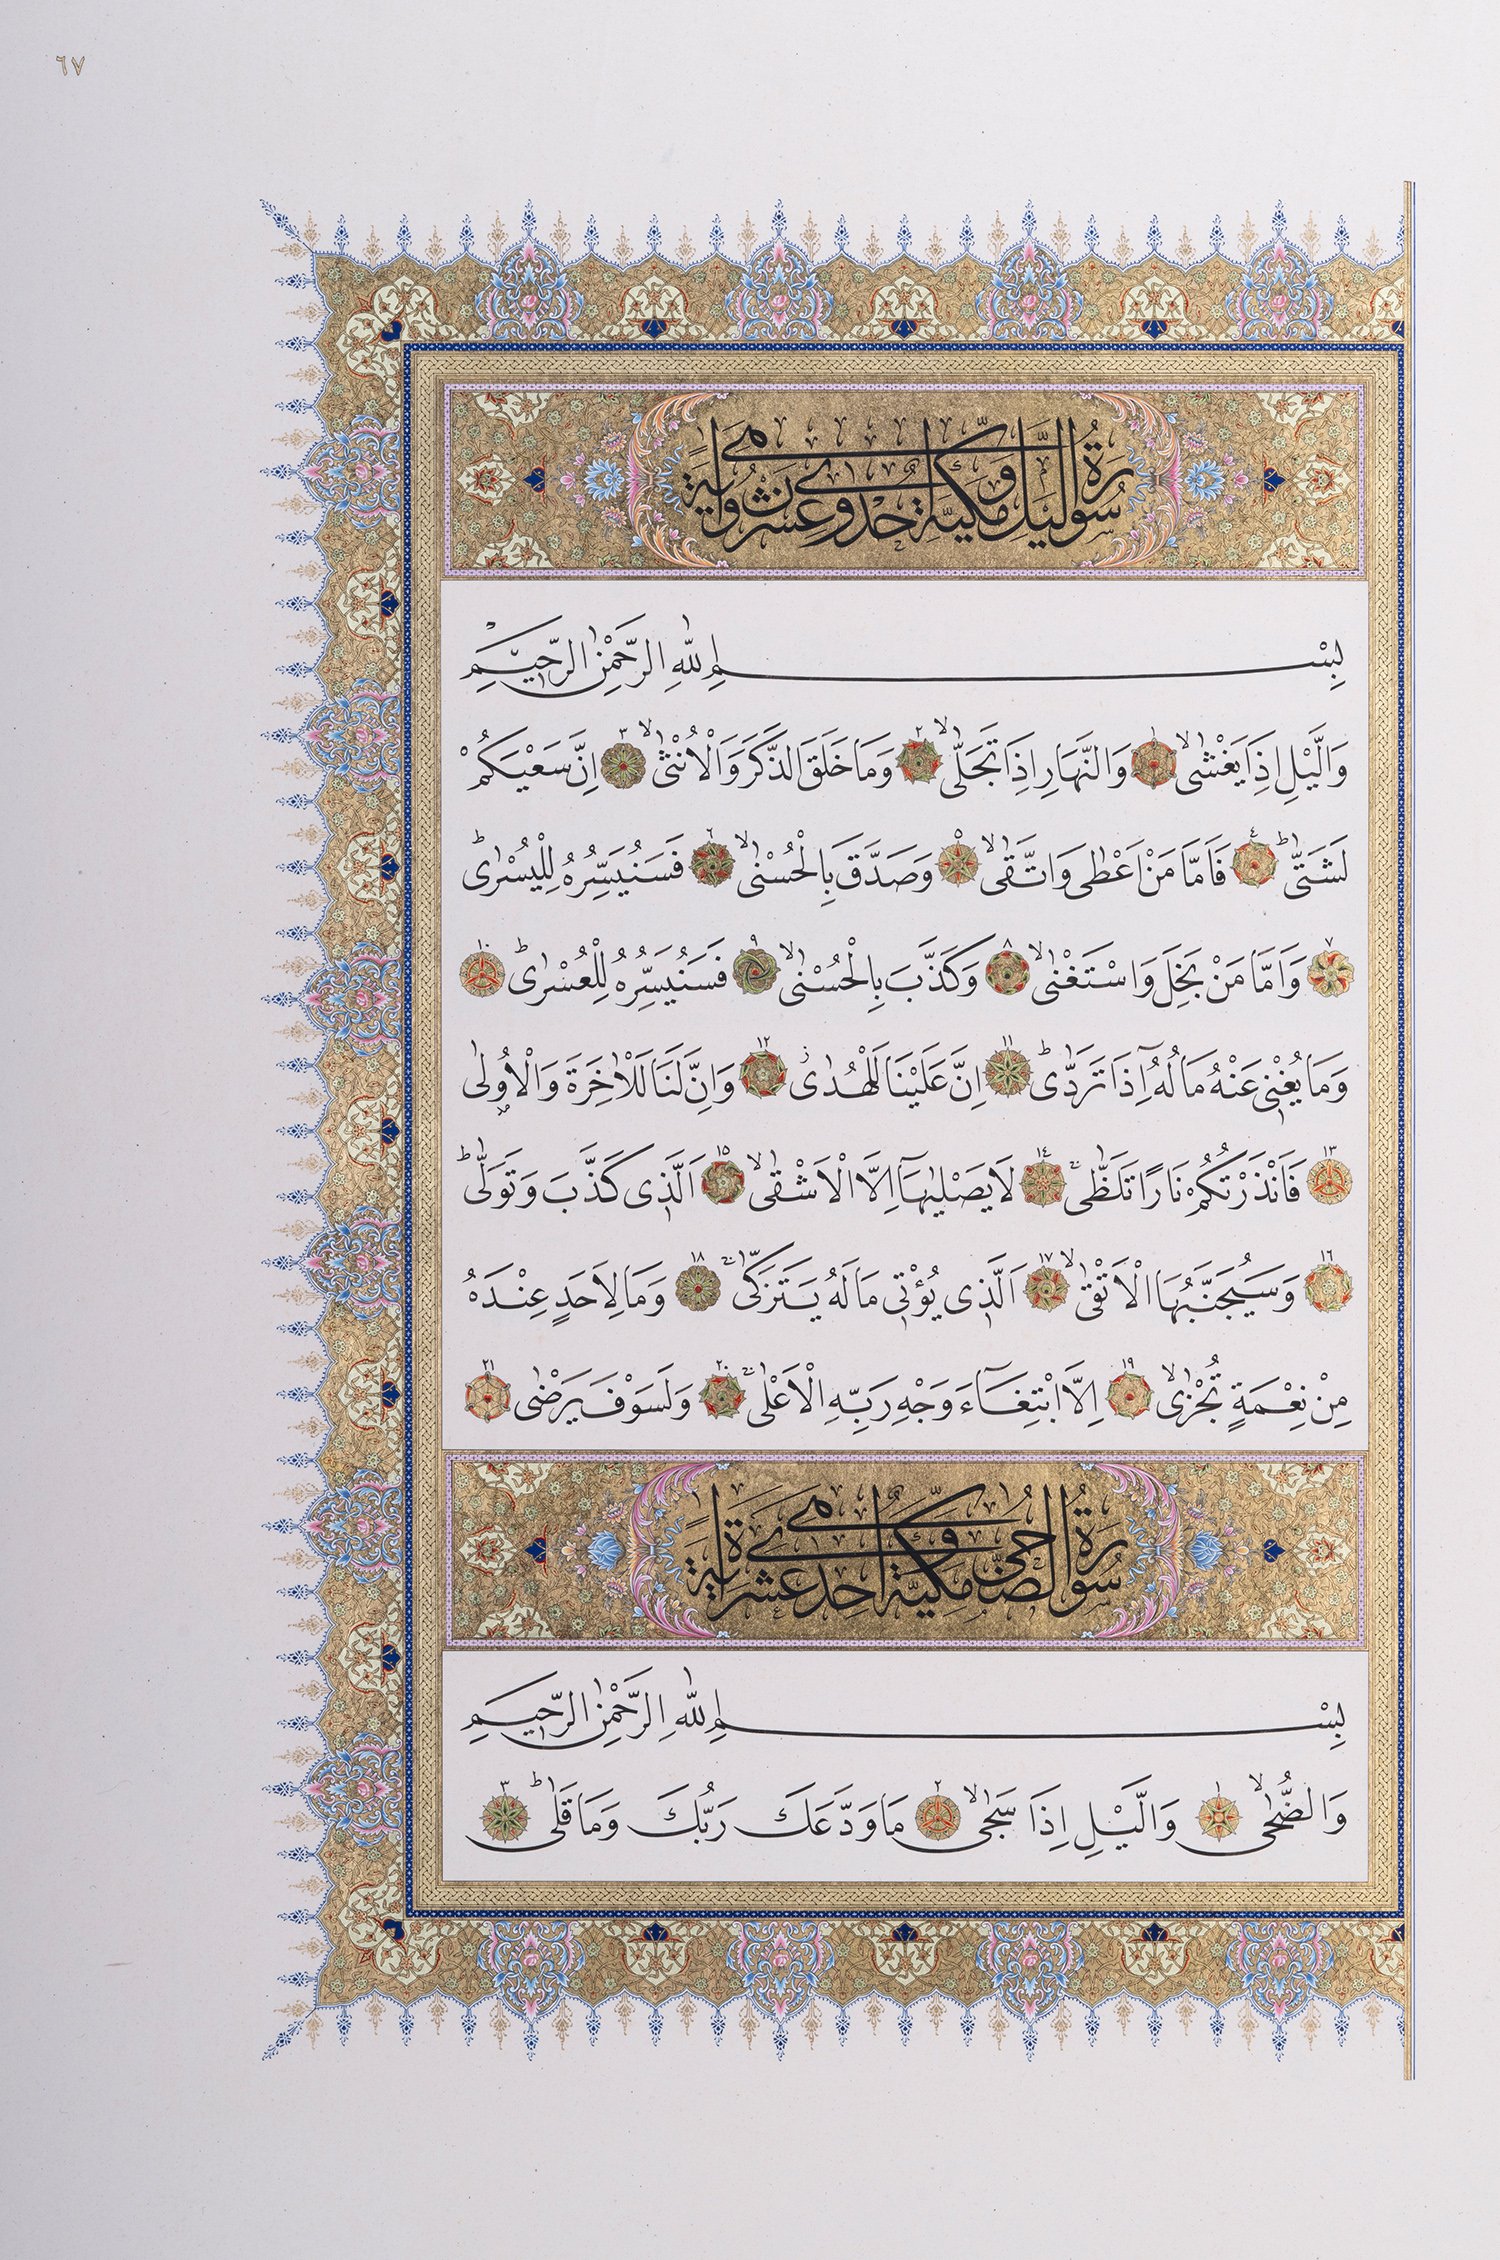 ٦٧
سورة والليل مكية وهي احدى وعشرون اية
بِسْمِ اللهِ الرَّحْمٰنِ الرَّحٖيمِ
وَالَّيْلِ اِذَا يَغْشٰىۙ ١ وَالنَّهَارِ اِذَا تَجَلّٰىۙ ٢ وَمَا خَلَقَ الذَّكَرَ وَالْاُنْثٰىۙ ٣ اِنَّ سَعْيَكُمْ
لَشَتّٰىؕ ٤ فَاَمَّا مَنْ اَعْطٰى وَاتَّقٰىۙ ٥ وَصَدَّقَ بِالْحُسْنٰىۙ ٦ فَسَنُيَسِّرُهُ لِلْيُسْرٰىؕ
٧ وَاَمَّا مَنْ بَخِلَ وَاسْتَغْنٰىۙ ٨ وَكَذَّبَ بِالْحُسْنٰىۙ ٩ فَسَنُيَسِّرُهُ لِلْعُسْرٰىؕ ١٠
وَمَا يُغْنٖى عَنْهُ مَالُهُٓ اِذَا تَرَدّٰىؕ ١١ اِنَّ عَلَيْنَا لَلْهُدٰىؗ ١٢ وَاِنَّ لَنَا لَلْاٰخِرَةَ وَالْاُو۫لٰى
١٣ فَاَنْذَرْتُكُمْ نَارًا تَلَظّٰىۚ ١٤ لَا يَصْلٰيهَٓا اِلَّا الْاَشْقٰىۙ ١٥ اَلَّذٖى كَذَّبَ وَتَوَلّٰىؕ
١٦ وَسَيُجَنَّبُهَا الْاَتْقٰىۙ ١٧ اَلَّذٖى يُؤْتٖى مَالَهُ يَتَزَكّٰىۚ ١٨ وَمَا لِاَحَدٍ عِنْدَهُ
مِنْ نِعْمَةٍ تُجْزٰىۙ ١٩ اِلَّا ابْتِغَٓاءَ وَجْهِ رَبِّهِ الْاَعْلٰىۚ ٢٠ وَلَسَوْفَ يَرْضٰى ٢١
سورة والضحى مكية وهي احدى عشرة اية
بِسْمِ اللهِ الرَّحْمٰنِ الرَّحٖيمِ
وَالضُّحٰىۙ ١ وَالَّيْلِ اِذَا سَجٰىۙ ٢ مَا وَدَّعَكَ رَبُّكَ وَمَا قَلٰىؕ ٣